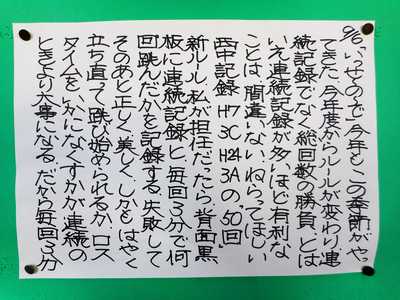 9/6 「いっせーので」今年もこの季節がやっ
てきた。今年度からルールが変わり、連
続記録でなく総回数の勝負。とは
いえ連続記録が多いほど有利な
ことは、間違いない。ねらってほしい
西中記録 H7 3C H24 3Aの“50回”
新ルール、私が担任だったら、背面黒
板に連続記録と、毎回3分で何
回跳んだかを記録する。失敗して
そのあと正しく、美しく、しかもはやく
立ち直って跳び始められるか、ロス
タイムをいかになくすかが連続の
ときより大事になる。だから毎回3分